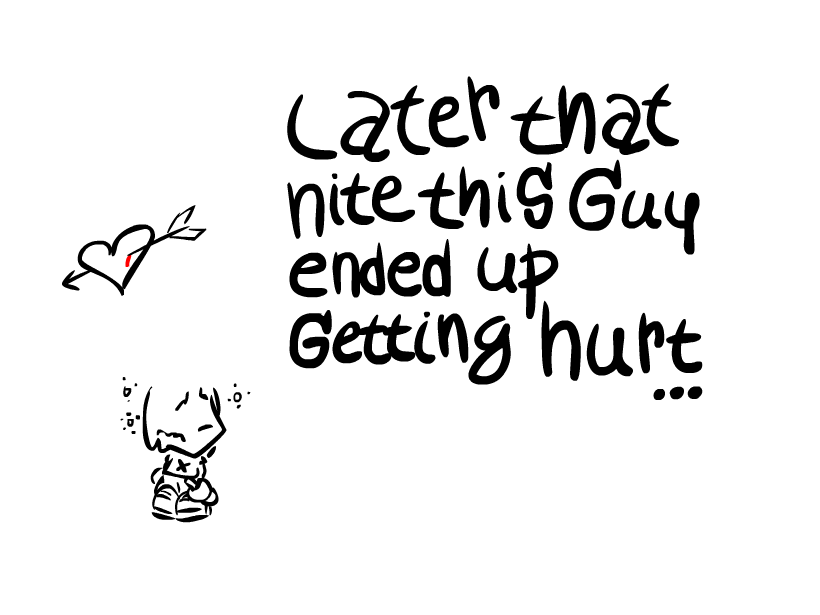 Later that
nite this Guy
ended up
Getting hurt
...